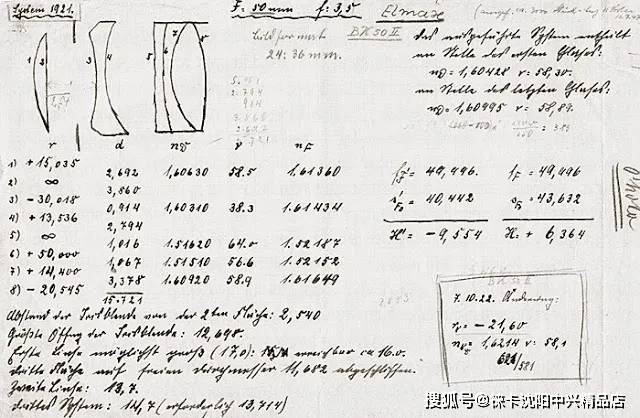 System 1921.
F = 50 mm f: 3,5
Elmax
Bildformat
24:36 mm.
BK 50 II
das ausgeführte System enthält
an Stelle des ersten Glases:
n_D = 1,60428 ν: 58,30.
an Stelle des letzten Glases:
n_D = 1,60995 ν: 58,89.
1 2 3 4 5 6 7 8
r d n_D ν n_F
1) + 15,035
2,692 1,60630 58.5 1.61360
2) ∞
3,860
3) - 30,018
0,914 1,60310 38.3 1.61434
4) + 13,536
2,794
5) ∞
1,016 1.51620 64.0 1.52187
6) + 50,000
1,067 1.51510 56.6 1.52152
7) + 14,400
3,378 1.60920 58.9 1.61649
8) - 20,545
15.721
= 49,496. = 49,496
= 40,442 = 43,632
H' = - 9,554 H = + 6,364
7.10.22. Änderung:
r = - 21,60
n = 1,6214 ν: 58,1
Abstand der Irisblende von der 2ten Fläche: 2,540
Größte Öffng der Irisblende: 12,698.
Erste Linse möglichst groß (17,0): erreichbar ca 16.0.
dritte Fläche auf freien Durchmesser 11,682 abgeschliffen.
Zweite Linse: 13,7.
drittes System: 14,7 (erforderlich 13,714)
搜狐号@徕卡沈阳中兴精品店